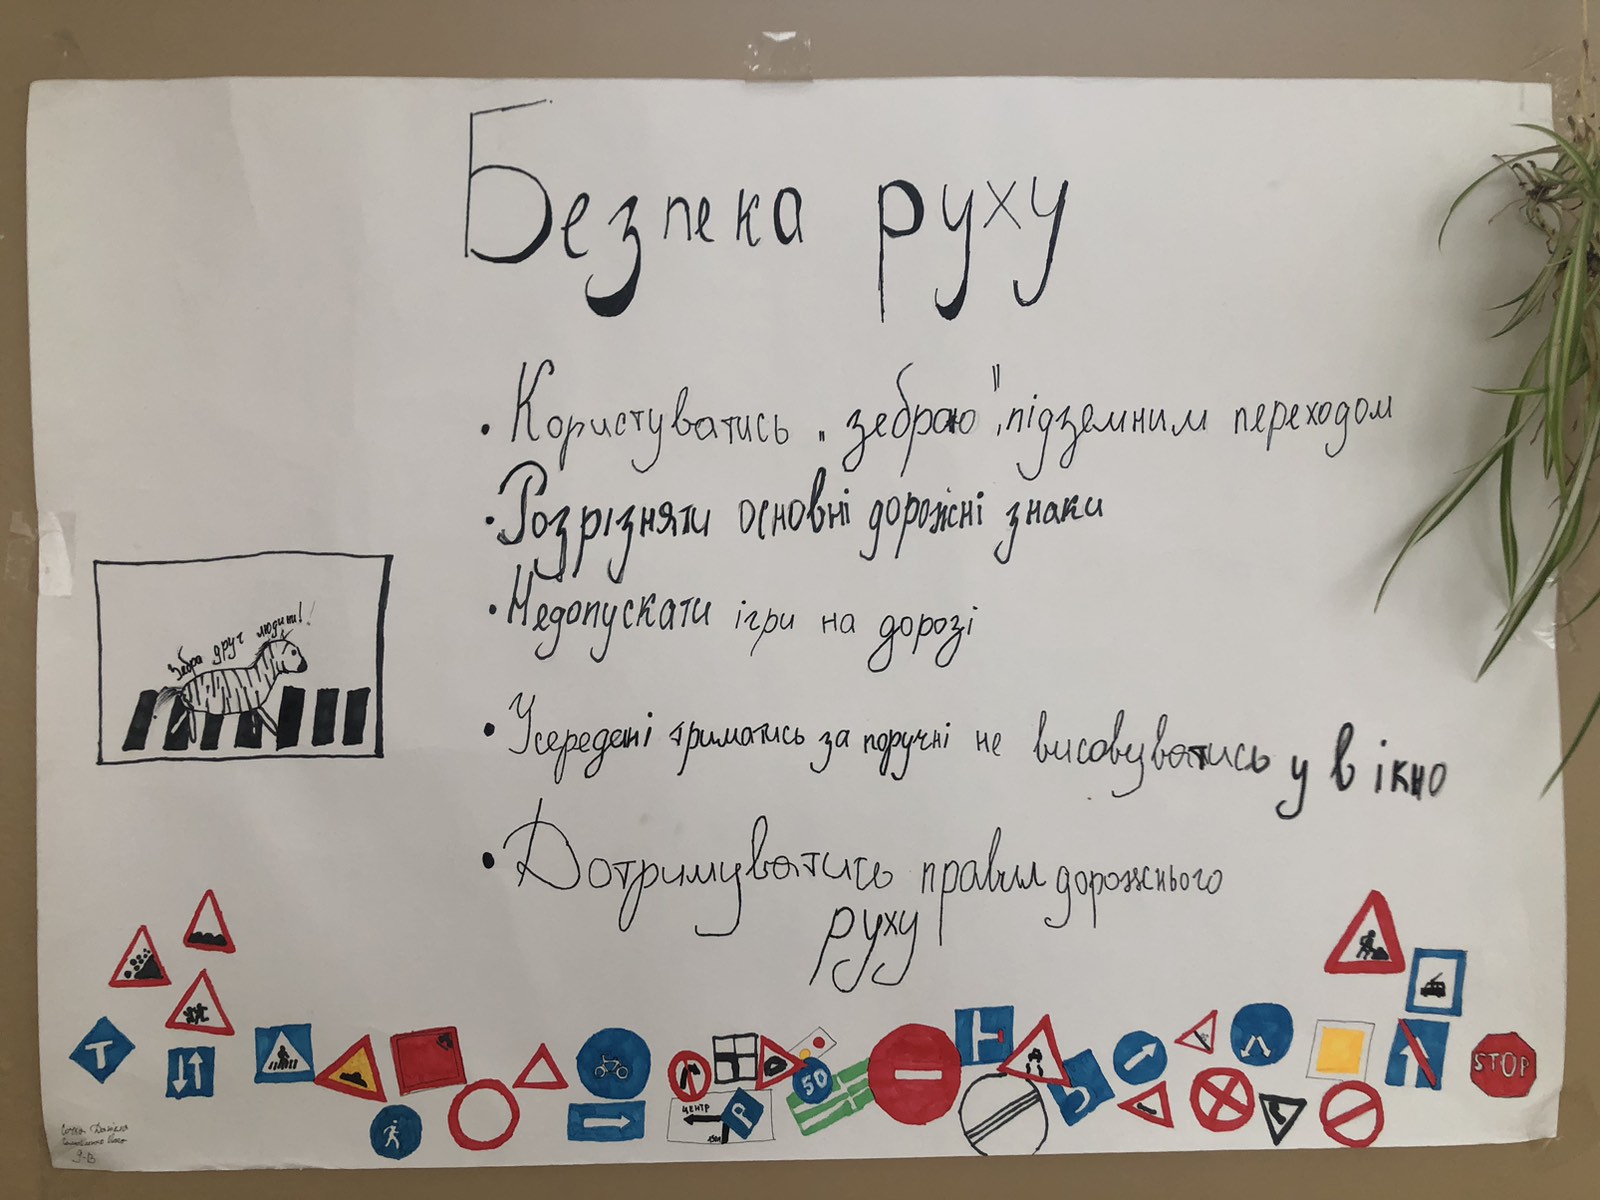 Безпека руху
• Користуватись „зебраю", підземним переходом
• Розрізняти основні дорожні знаки
• Недопускати ігри на дорозі
Зебра друг людини!!
• Усередені триматись за поручні не висовуватись у в ікно
• Дотримуватись правил дорожнього
руху
STOP
50
ЦЕНТР
P
9-В